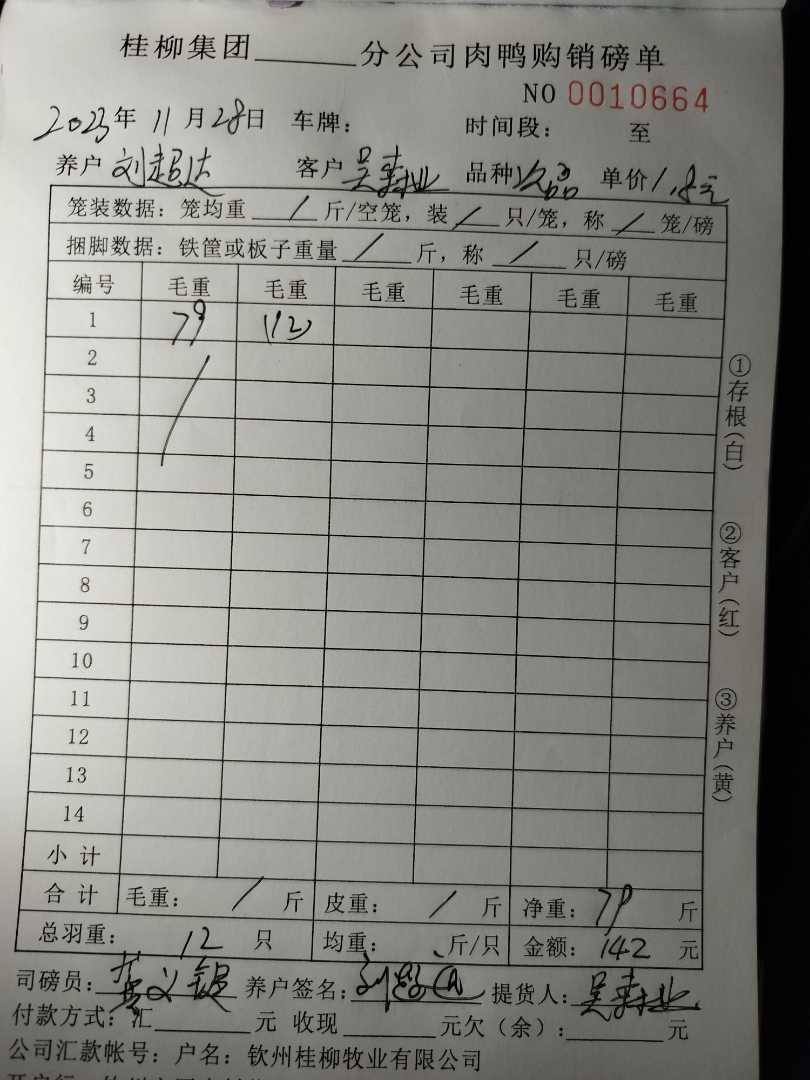 桂柳集团______分公司肉鸭购销磅单
NO 0010664
2023年11月28日 车牌: 时间段: 至
养户 刘超达 客户 吴寿业 品种 次品 单价 1.8元
笼装数据: 笼均重 / 斤/空笼, 装 / 只/笼, 称 / 笼/磅
捆脚数据: 铁筐或板子重量 / 斤, 称 / 只/磅
编号 毛重 毛重 毛重 毛重 毛重 毛重
1 79 (12)
2 /
3
4
5
6
7
8
9
10
11
12
13
14
小计
合计 毛重: / 斤 皮重: / 斤 净重: 79 斤
总羽重: 12 只 均重: 斤/只 金额: 142 元
司磅员: 养户签名: 刘超达 提货人: 吴寿业
付款方式: 汇______元 收现______元欠(余):______元
公司汇款帐号: 户名: 钦州桂柳牧业有限公司
①存根(白)
②客户(红)
③养户(黄)